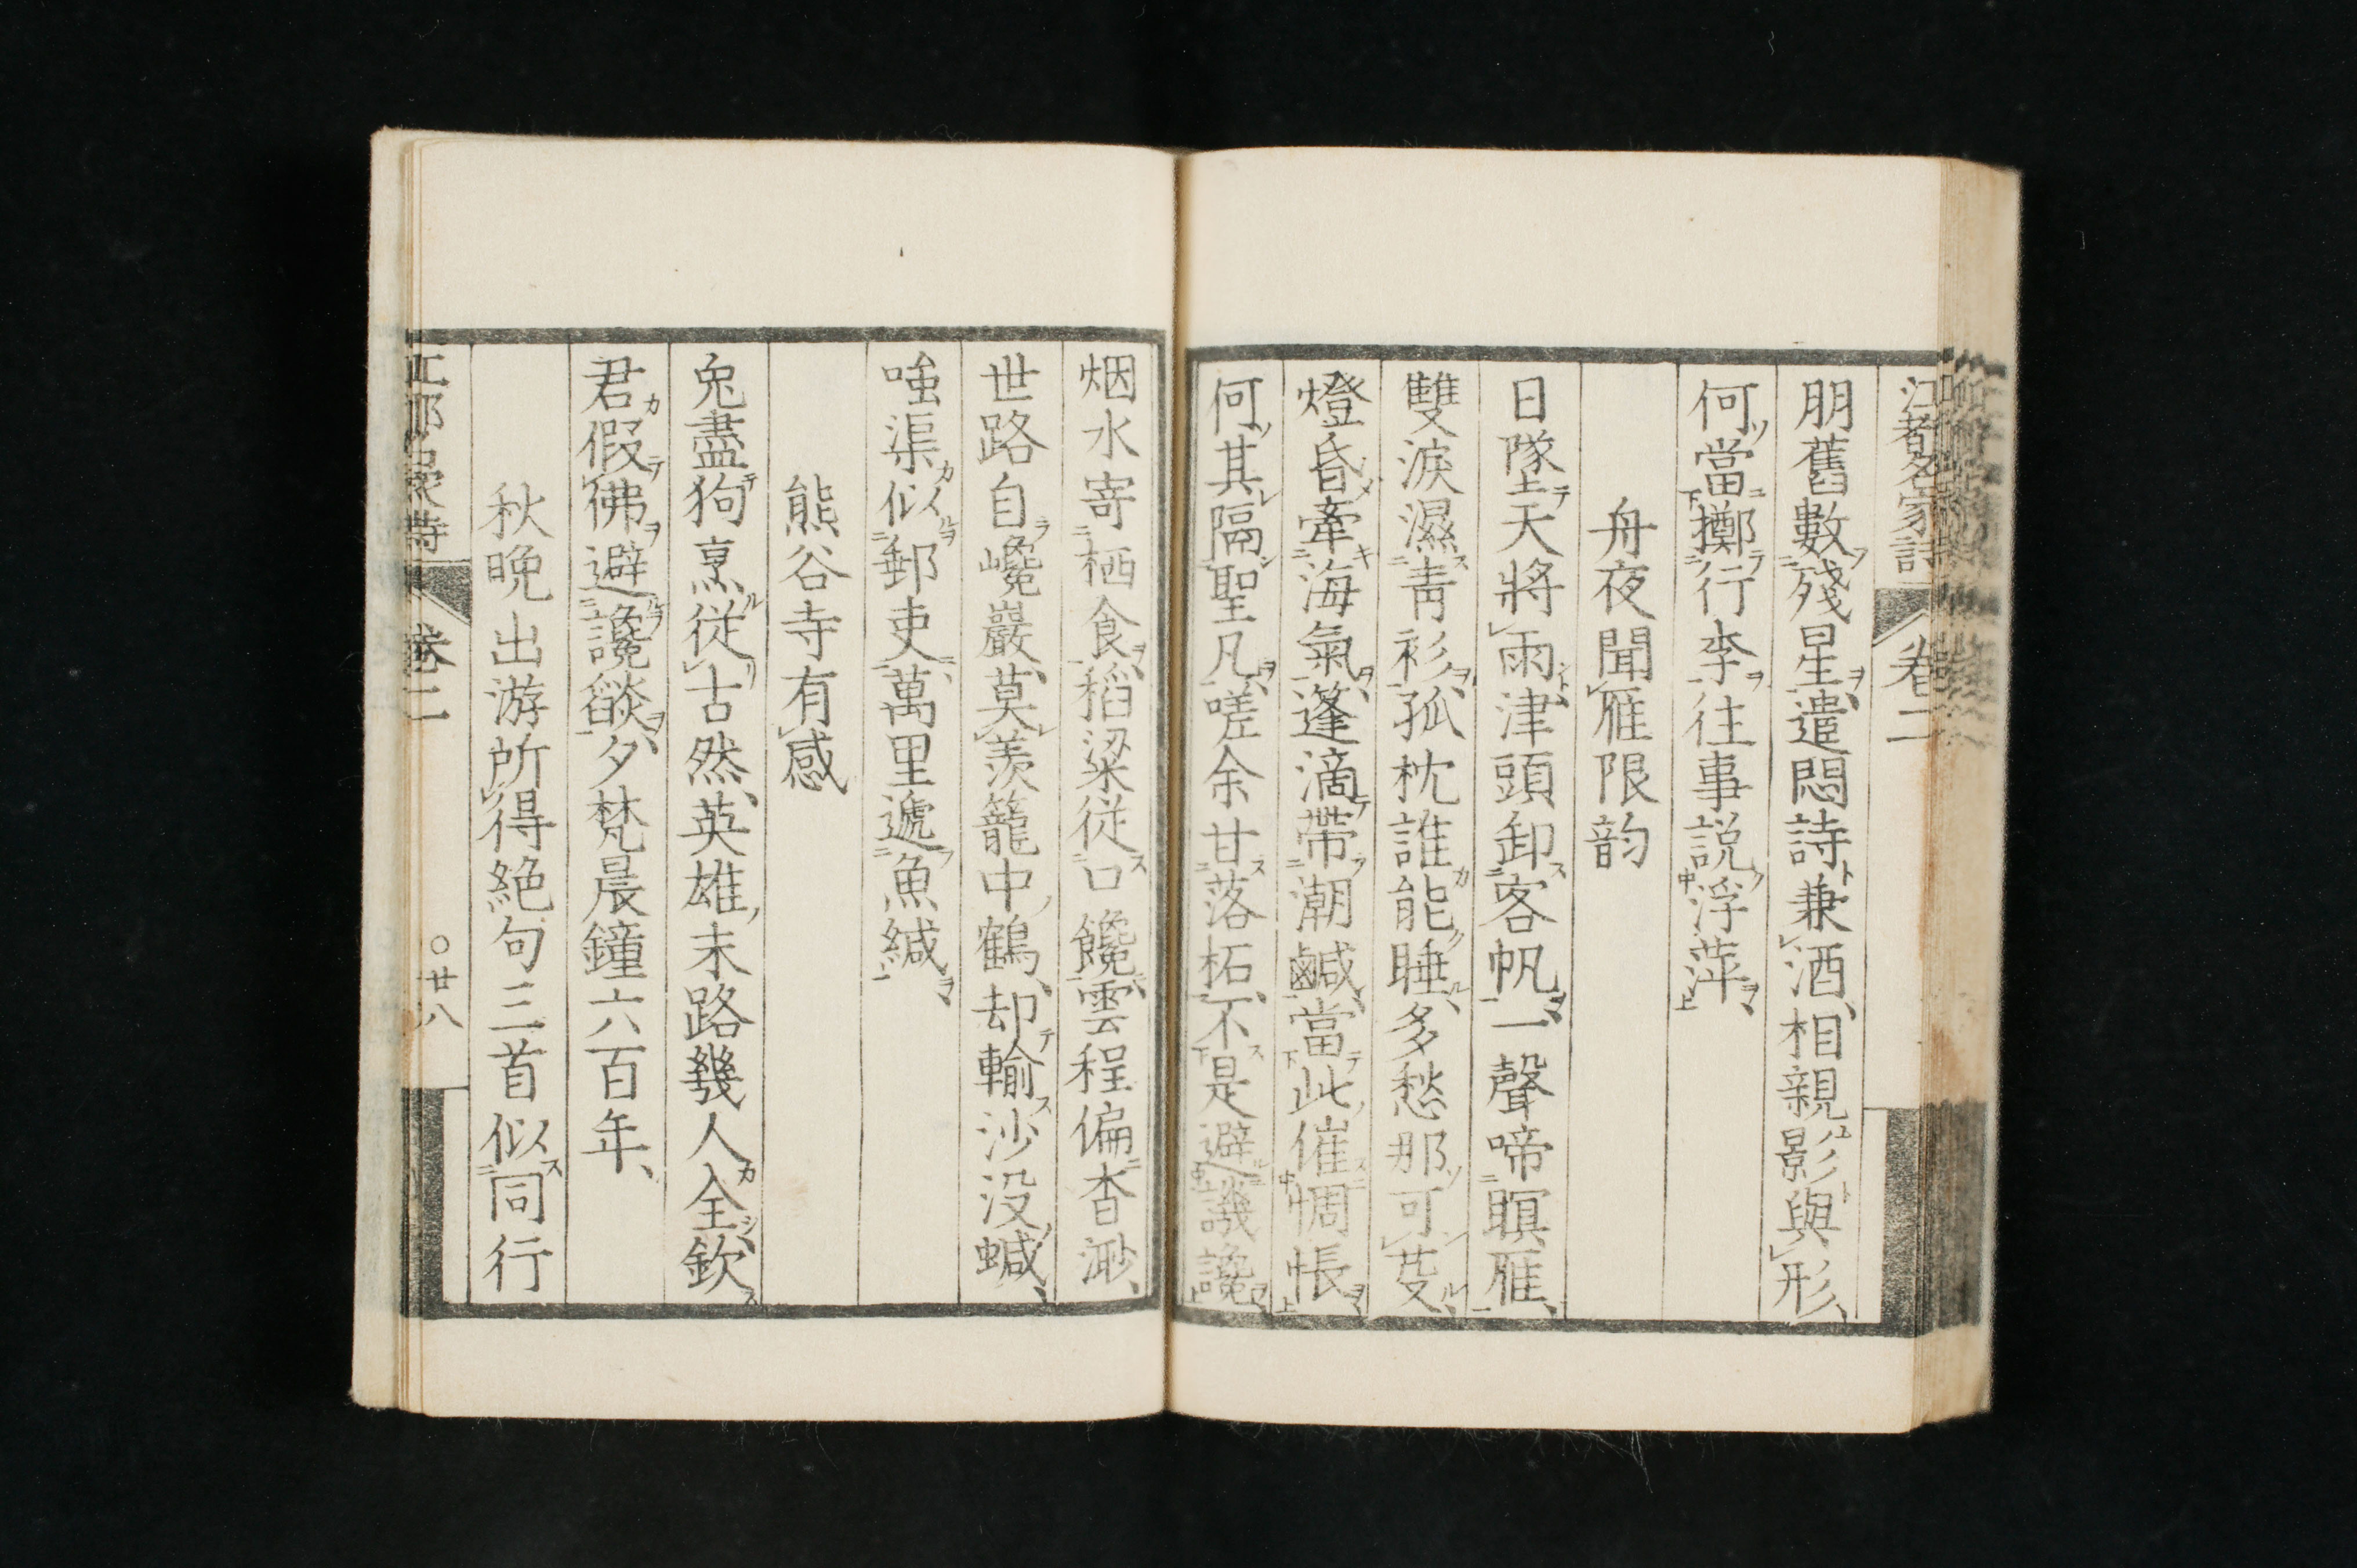 江都名家詩 卷二
朋舊數殘星、遣悶詩兼酒、相親影與形、
何當擲行李往事説浮萍
舟夜聞雁限韵
日墜天將雨津頭卸客帆、一聲啼暝雁、
雙淚濕青衫、孤枕誰能睡、多愁那可芟、
燈昏牽海氣、篷滴帶潮鹹、當此催惆悵
何其隔聖凡、嗟余甘落柘、不是避譏讒
烟水寄栖食、稻粱従口饞、雲程偏杳渺、
世路自巉巖、莫羨籠中鶴、却輸沙没蝛、
嗤渠似郵吏、萬里遞魚緘
熊谷寺有感
兔盡狗烹従古然、英雄末路幾人全、欽
君假佛避讒燄、夕梵晨鐘六百年、
秋晩出游所得絶句三首似同行
卷二 〇廿八